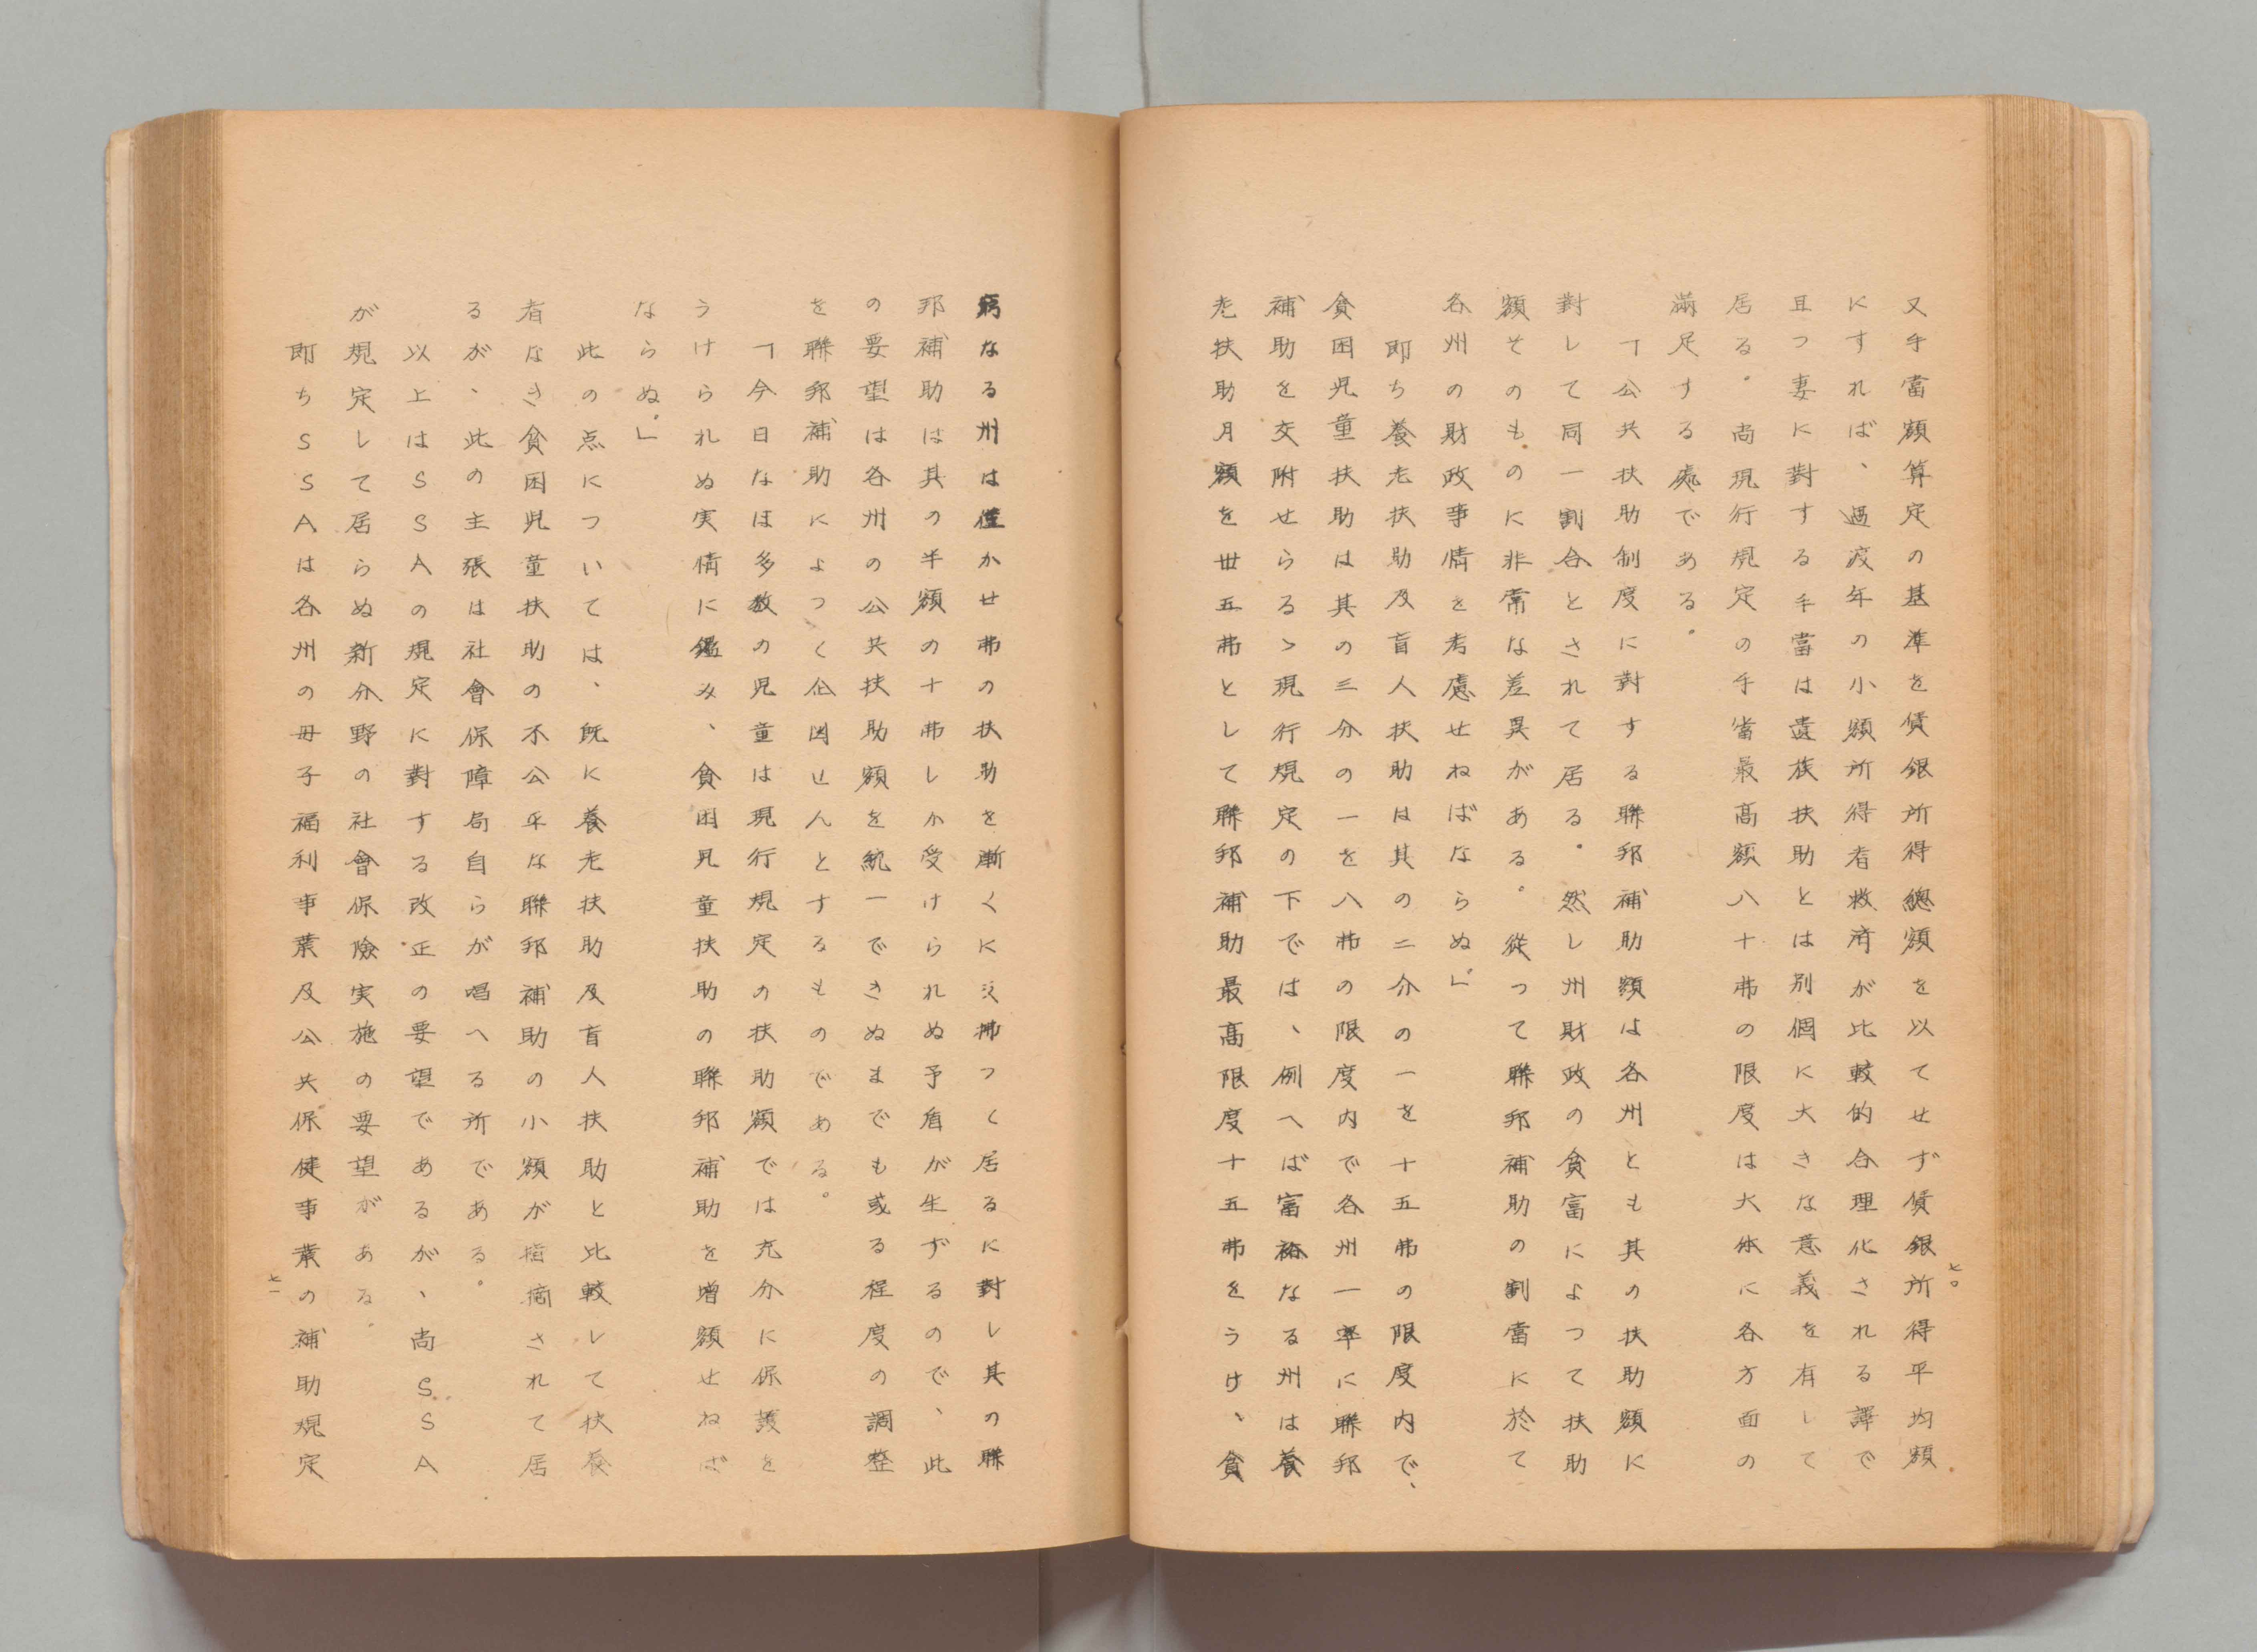 又手當額算定の基準を賃銀所得總額を以てせず賃銀所得平均額
にすれば、過渡年の小額所得者救済が比較的合理化される譯で
且つ妻に對する手當は遺族扶助とは別個に大きな意義を有して
居る。尚現行規定の手當最高額八十弗の限度は大体に各方面の
滿足する處である。
「公共扶助制度に對する聯邦補助額は各州とも其の扶助額に
對して同一割合とされて居る。然し州財政の貧富によつて扶助
額そのものに非常な差異がある。從つて聯邦補助の割當に於て
各州の財政事情を考慮せねばならぬ。」
即ち養老扶助及盲人扶助は其の二分の一を十五弗の限度内で、
貧困児童扶助は其の三分の一を八弗の限度内で各州一率に聯邦
補助を交附せらるゝ現行規定の下では、例へば富裕なる州は養
老扶助月額を丗五弗として聯邦補助最高限度十五弗をうけ、貧
七〇
窮なる州は僅か廿弗の扶助を漸くに支拂つく居るに對し其の聯
邦補助は其の半額の十弗しか受けられぬ予盾が生ずるので、此
の要望は各州の公共扶助額を統一できぬまでも或る程度の調整
を聯邦補助によつく企図せんとするものである。
「今日なほ多数の児童は現行規定の扶助額では充分に保護を
うけられぬ実情に鑑み、貧困児童扶助の聯邦補助を増額せねば
ならぬ。」
此の点については、既に養老扶助及盲人扶助と比較して扶養
者なき貧困児童扶助の不公平な聯邦補助の小額が指摘されて居
るが、此の主張は社會保障局自らが唱へる所である。
以上はSSAの規定に對する改正の要望であるが、尚SSA
が規定して居らぬ新分野の社會保險実施の要望がある。
即ちSSAは各州の母子福利事業及公共保健事業の補助規定
七一